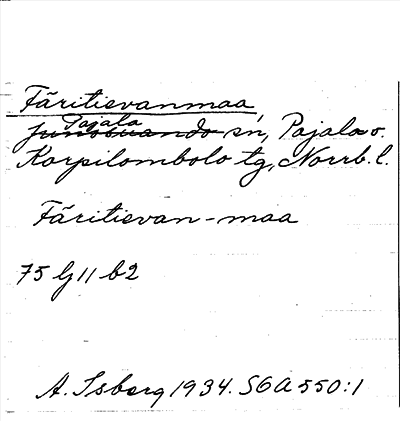 Färitievanmaa
Pajala
Junosuando sn, Pajala o.
Korpilombolo tg, Norrb. l.
Färitievan-maa
75 G 11 b2
A. Isberg 1934. SGA 550:1